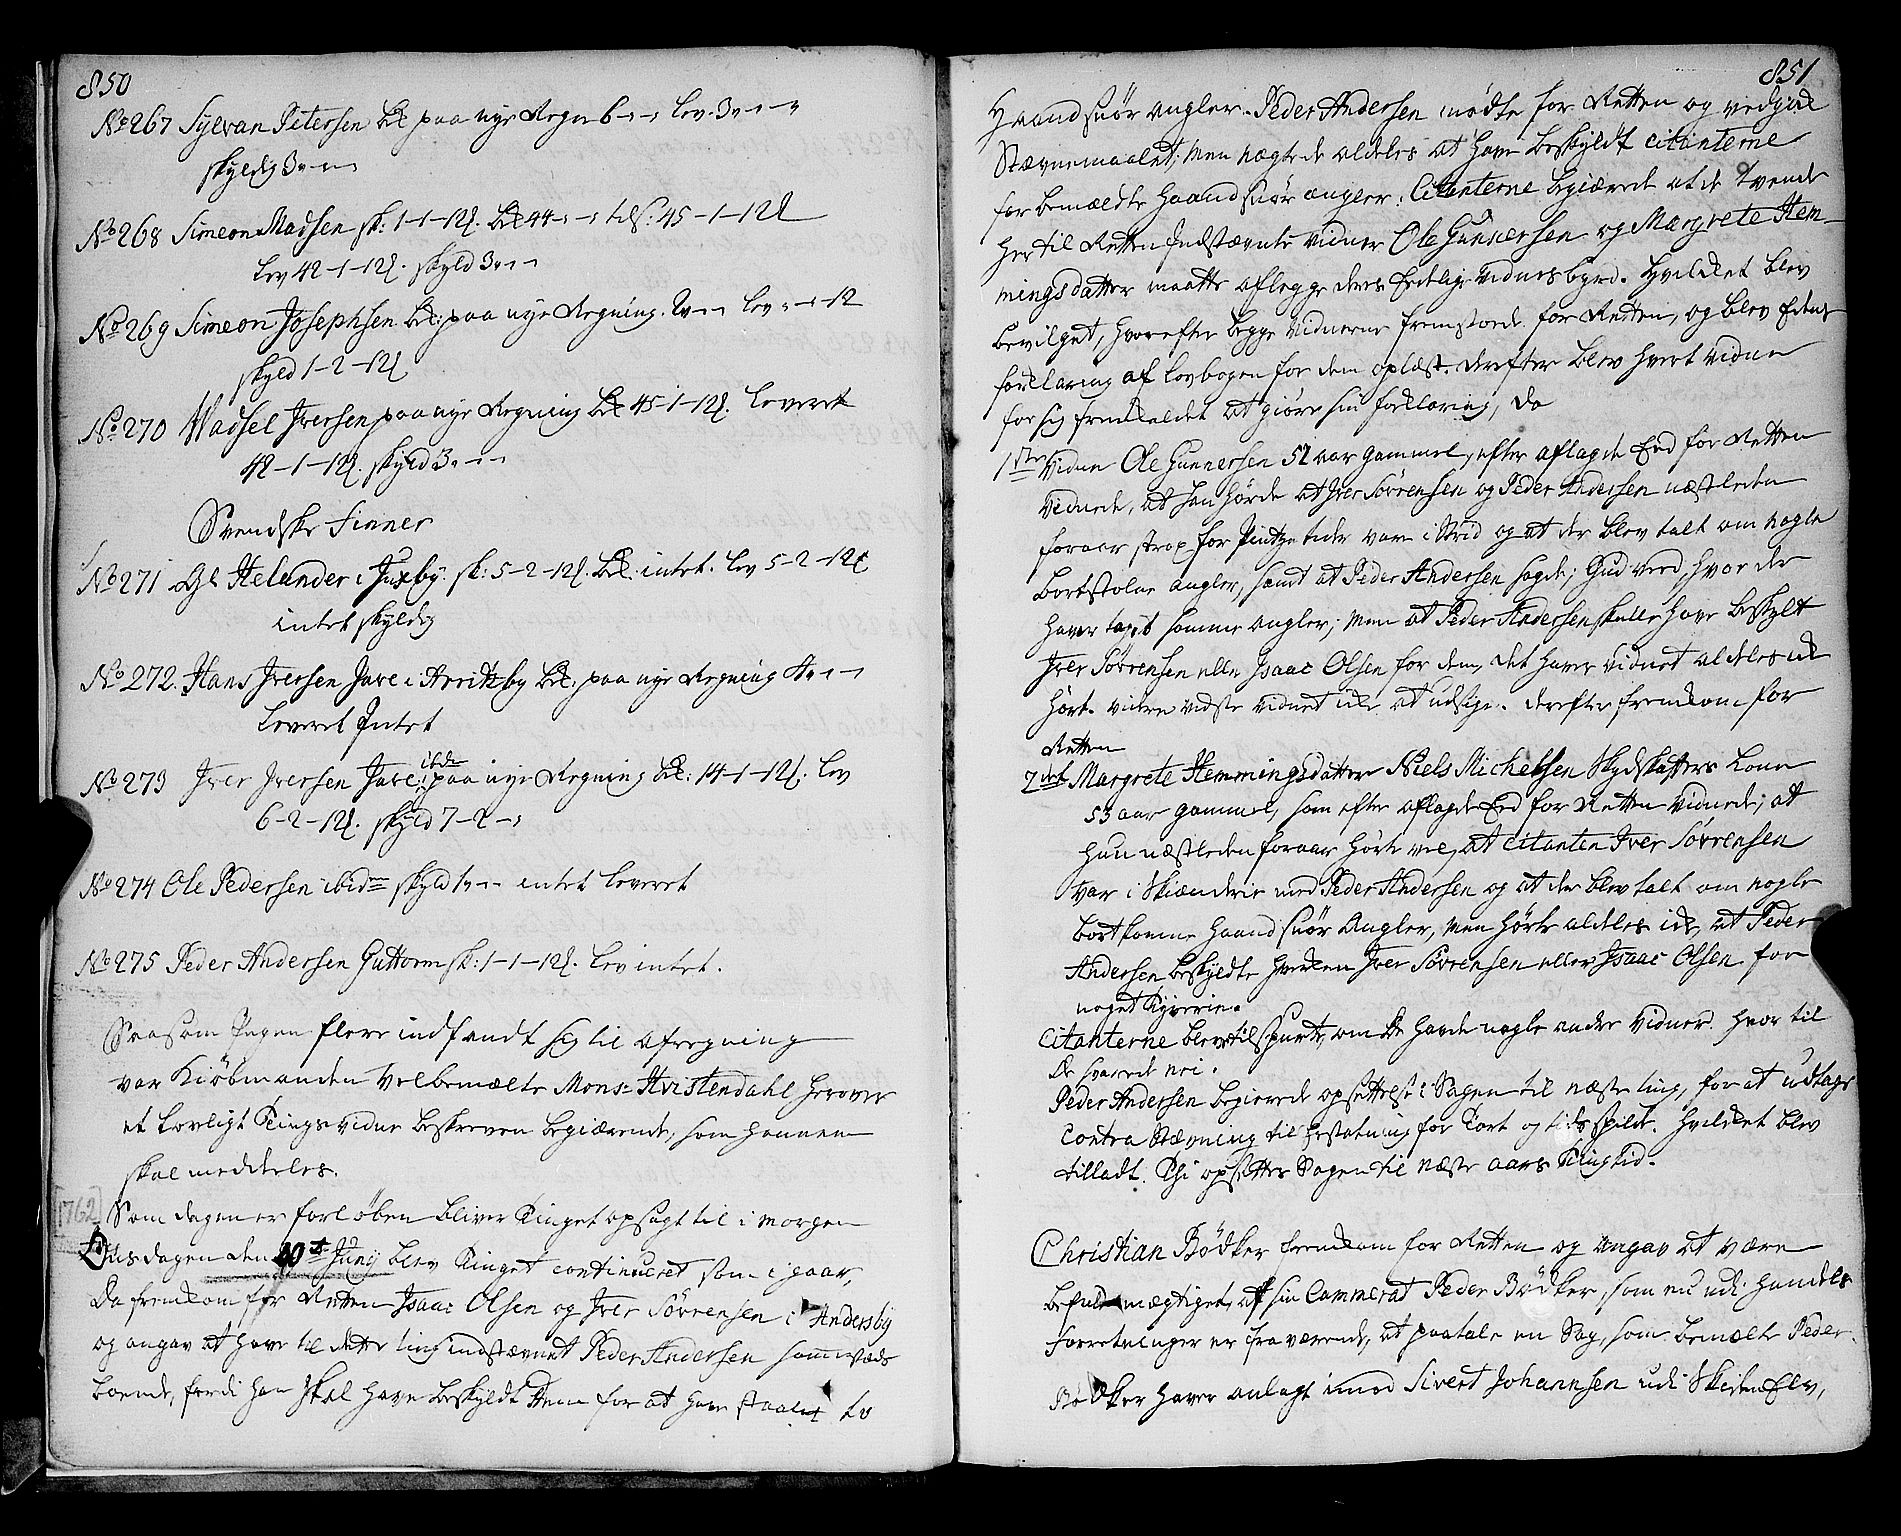 850
No 267 Sylvan Petersen bek paa nye Regn 6 -,-, lev. 3 -,-,-
skyldig 3 -,-,-
No 268 Simeon Madsen sk: 1-1-12 ſ. bek 44 -,-, tilſ: 45-1-12 ſ
lev 42-1-12 ſ. skyld 3 -,-,-
No 269 Simeon Josephsen bek: paa nye Regning. 2 -,-,- lev -,-,-12
skyld 1-2-12 ſ
No 270 Wadsel Iversen paa nye Regning bek 45-1-12 ſ. leveret
42-1-12 ſ. skyld 3 -,-,-
Svendske Finner
No 271 Gl Helander i Juxby: sk: 5-2-12 ſ. bek: intet. lev 5-2-12 ſ
intet skyldig
No 272. Hans Iversen Jare i Arritsby bek: paa nye Regning 4 -,-,-
leveret Intet
No 273 Iver Iversen Jare ibde paa nye Regning bek: 14-1-12 ſ. lev
6-2-12 ſ. skyld 7-2-,
No 274 Ole Pedersen ibidm skyld 1 -,-,- intet leveret
No 275 Peder Andersen Guttorm sk: 1-1-12 ſ. lev intet.
Saasom Ingen flere indfandt sig til afregning
var Kiøbmanden Velbemælte Mons: Hvistendahl herover
et lovligt Tings vidne beskreven begiærende, som hannem
skal meddeles.
[1762] Som dagen er forløben bliver Tinget opsagt til i morgen
Onsdagen den 10de Junij blev Tinget continueret som i gaar,
Da fremkom for Retten Isaac Olsen og Iver Sørrensen i Andersby
og angav at have til dette ting indstævnet Peder Andersen sammestæds
boende, fordi han skal have beskyldt dem for at have staalet to
851
Haandsnør angler. Peder Andersen mødte for Retten og vedgik
Stævnemaalet; men nægtede aldeles at have beskyldt Citanterne
for bemældte haandsnør angler. Citanterne begiærede at de tvende
her til Retten Indstævnte Vidner Ole Gunnersen og Margrete Hem-
mingsdatter maatte aflegge deres Eedlige Vidnesbyrd. Hvilket blev
bevilget, hvorefter begge Vidnerne fremstode for Retten, og blev Edens
forklaring af lovbogen for dem oplæst. derefter blev hvert vidne
for sig fremkaldet at giøre sin forklaring, da
1ste Vidne Ole Gunnersen 52 aar gammel, efter aflagde Eed for Retten
vidnede, at han hørde at Iver Sørrensen og Peder Andersen næstleden
foraar strax for Pintze tider var i Strid og at der blev talt om nogle
bortstolne angler, samt at Peder Andersen sagde; Gud veed, hvor de
haver taget somme angler; men at Peder Andersen skulle have beskylt
Iver Sørrensen eller Isaac Olsen for dem, det haver vidnet aldeles ik
hørt. videre vidste vidnet ike at udsige. derefter fremkom for
Retten
2det Margrete Hemmingsdatter Niels Michelsen Skydskaffers kone
53 aar gammel, som efter aflagde Eed for Retten vidnede; at
hun næstleden foraar hørte vel, at Citanten Iver Sørrensen
var i Skiænderie med Peder Andersen og at der blev talt om nogle
bortkomne haandsnør Angler, men hørte aldeles ik, at Peder
Andersen beskyldte hverken Iver Sørrensen eller Isaac Olsen for
noget Tyverie.
Citanterne blev tilspurte, om de havde nogle andre Vidner. hvor til
De svarede nei.
Peder Andersen begierede opsættelse i Sagen til næste ting, for at udtage
Contra Stævning til Erstatning for Tort og tids spilde. hvilket blev
tilladt. Thi opsættes Sagen til næste aars Tingtid.
Christian Bødker fremkom for Retten og angav at være
befuldmægtiget, af sin Cammerat Peder Bødker, som nu udi handels
forretninger er fraværende, at paatale en Sag, som bemælte Peder
Bødker haver anlagt imod Sivert Johannsen udi Skeiden Elv,